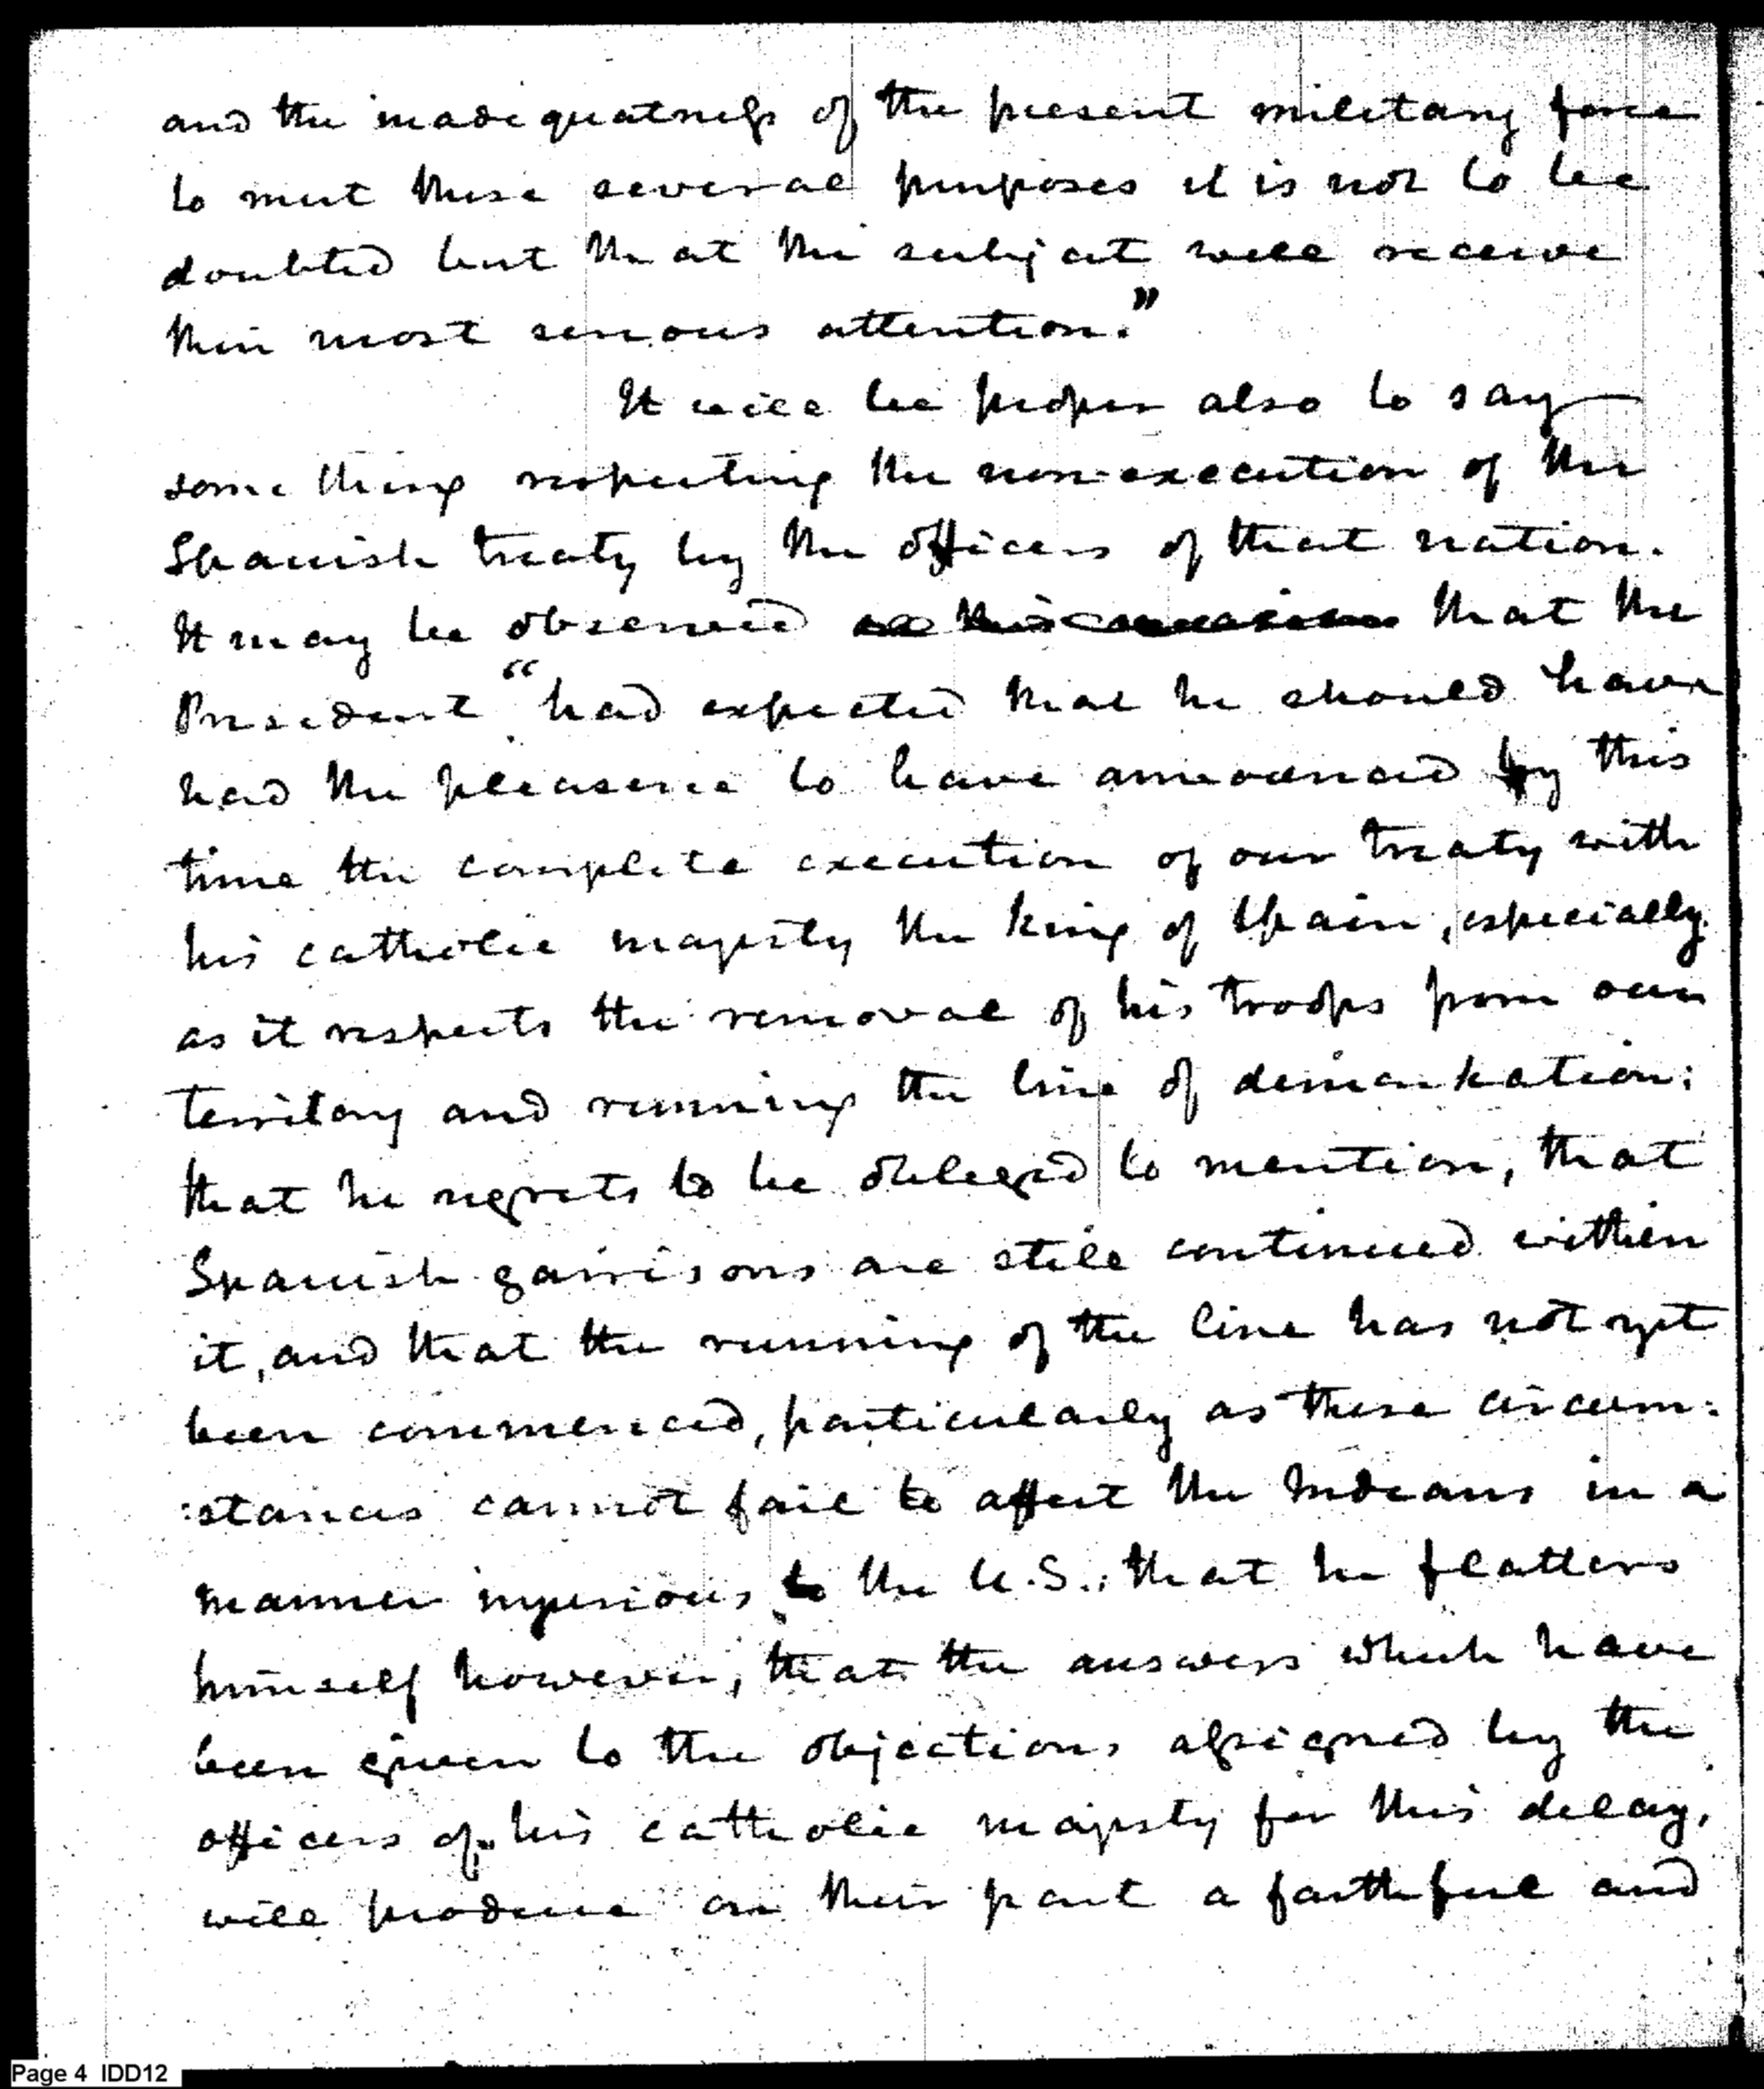 and the inadequatness of the present military force
to meet these several purposes it is not to be
doubted but that the subject will receive
their most serious attention."
It will be proper also to say
something respecting the non-execution of the
Spanish treaty by the officers of that nation.
It may be observed that the
President "had expected that he should have
had the pleasure to have announced by this
time the complete execution of our treaty with
his catholic majesty the king of Spain, especially
as it respects the removal of his troops from our
territory and running the line of demarkation:
that he regrets to be obleged to mention, that
Spanish garrisons are still continued within
it, and that the running of the line has not yet
been commenced, particularly as these circum:
:stances cannot fail to affect the Indians in a
manner injurious to the U.S.; that he flatters
himself however, that the answers which have
been given to the objections assigned by the
officers of his catholic majesty for this delay,
will produce on their part a faithful and
Page 4 IDD12